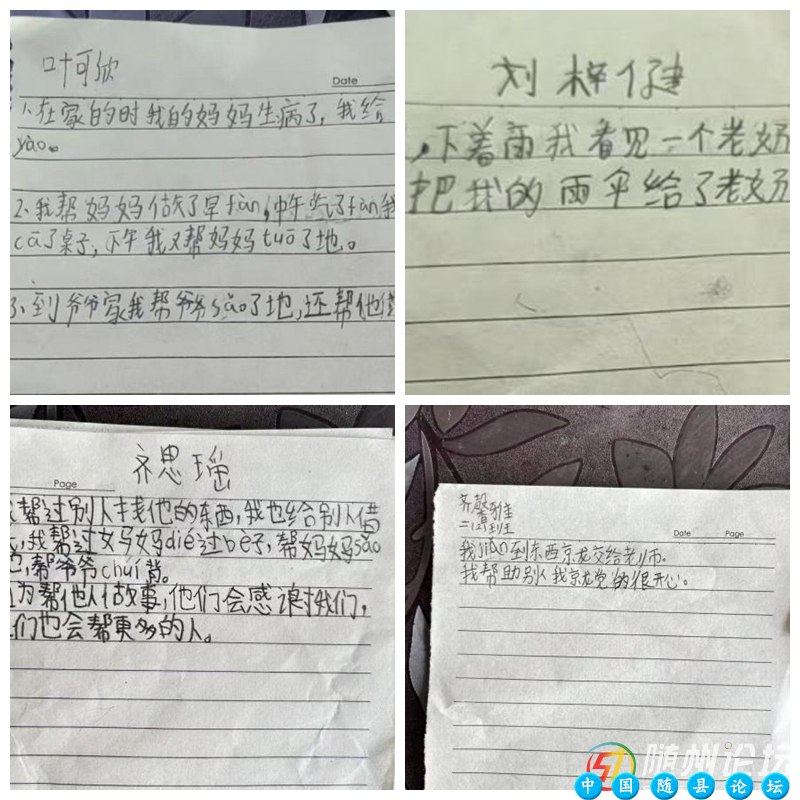 叶可欣
Date
1、在家的时我的妈妈生病了，我给
yào。
2、我帮妈妈做了早fàn，中午吃了fàn我
cā了桌子，下午我又帮妈妈tuō了地。
3、到爷爷家我帮爷爷sǎo了地，还帮他
刘梓健
，下着雨我看见一个老奶
把我的雨伞给了老奶
Page
齐思瑶
帮过别人找他的东西，我也给别人借
，我帮过妈妈dié过bèi子，帮妈妈sǎo
，帮爷爷chuí背。
为帮他人做事，他们会感谢我们，
们也会帮更多的人。
二（2）班
Date Page
我jiǎn到东西京尤交给老师。
我帮助别人我京尤觉的很开心。
随州论坛
中国随县论坛